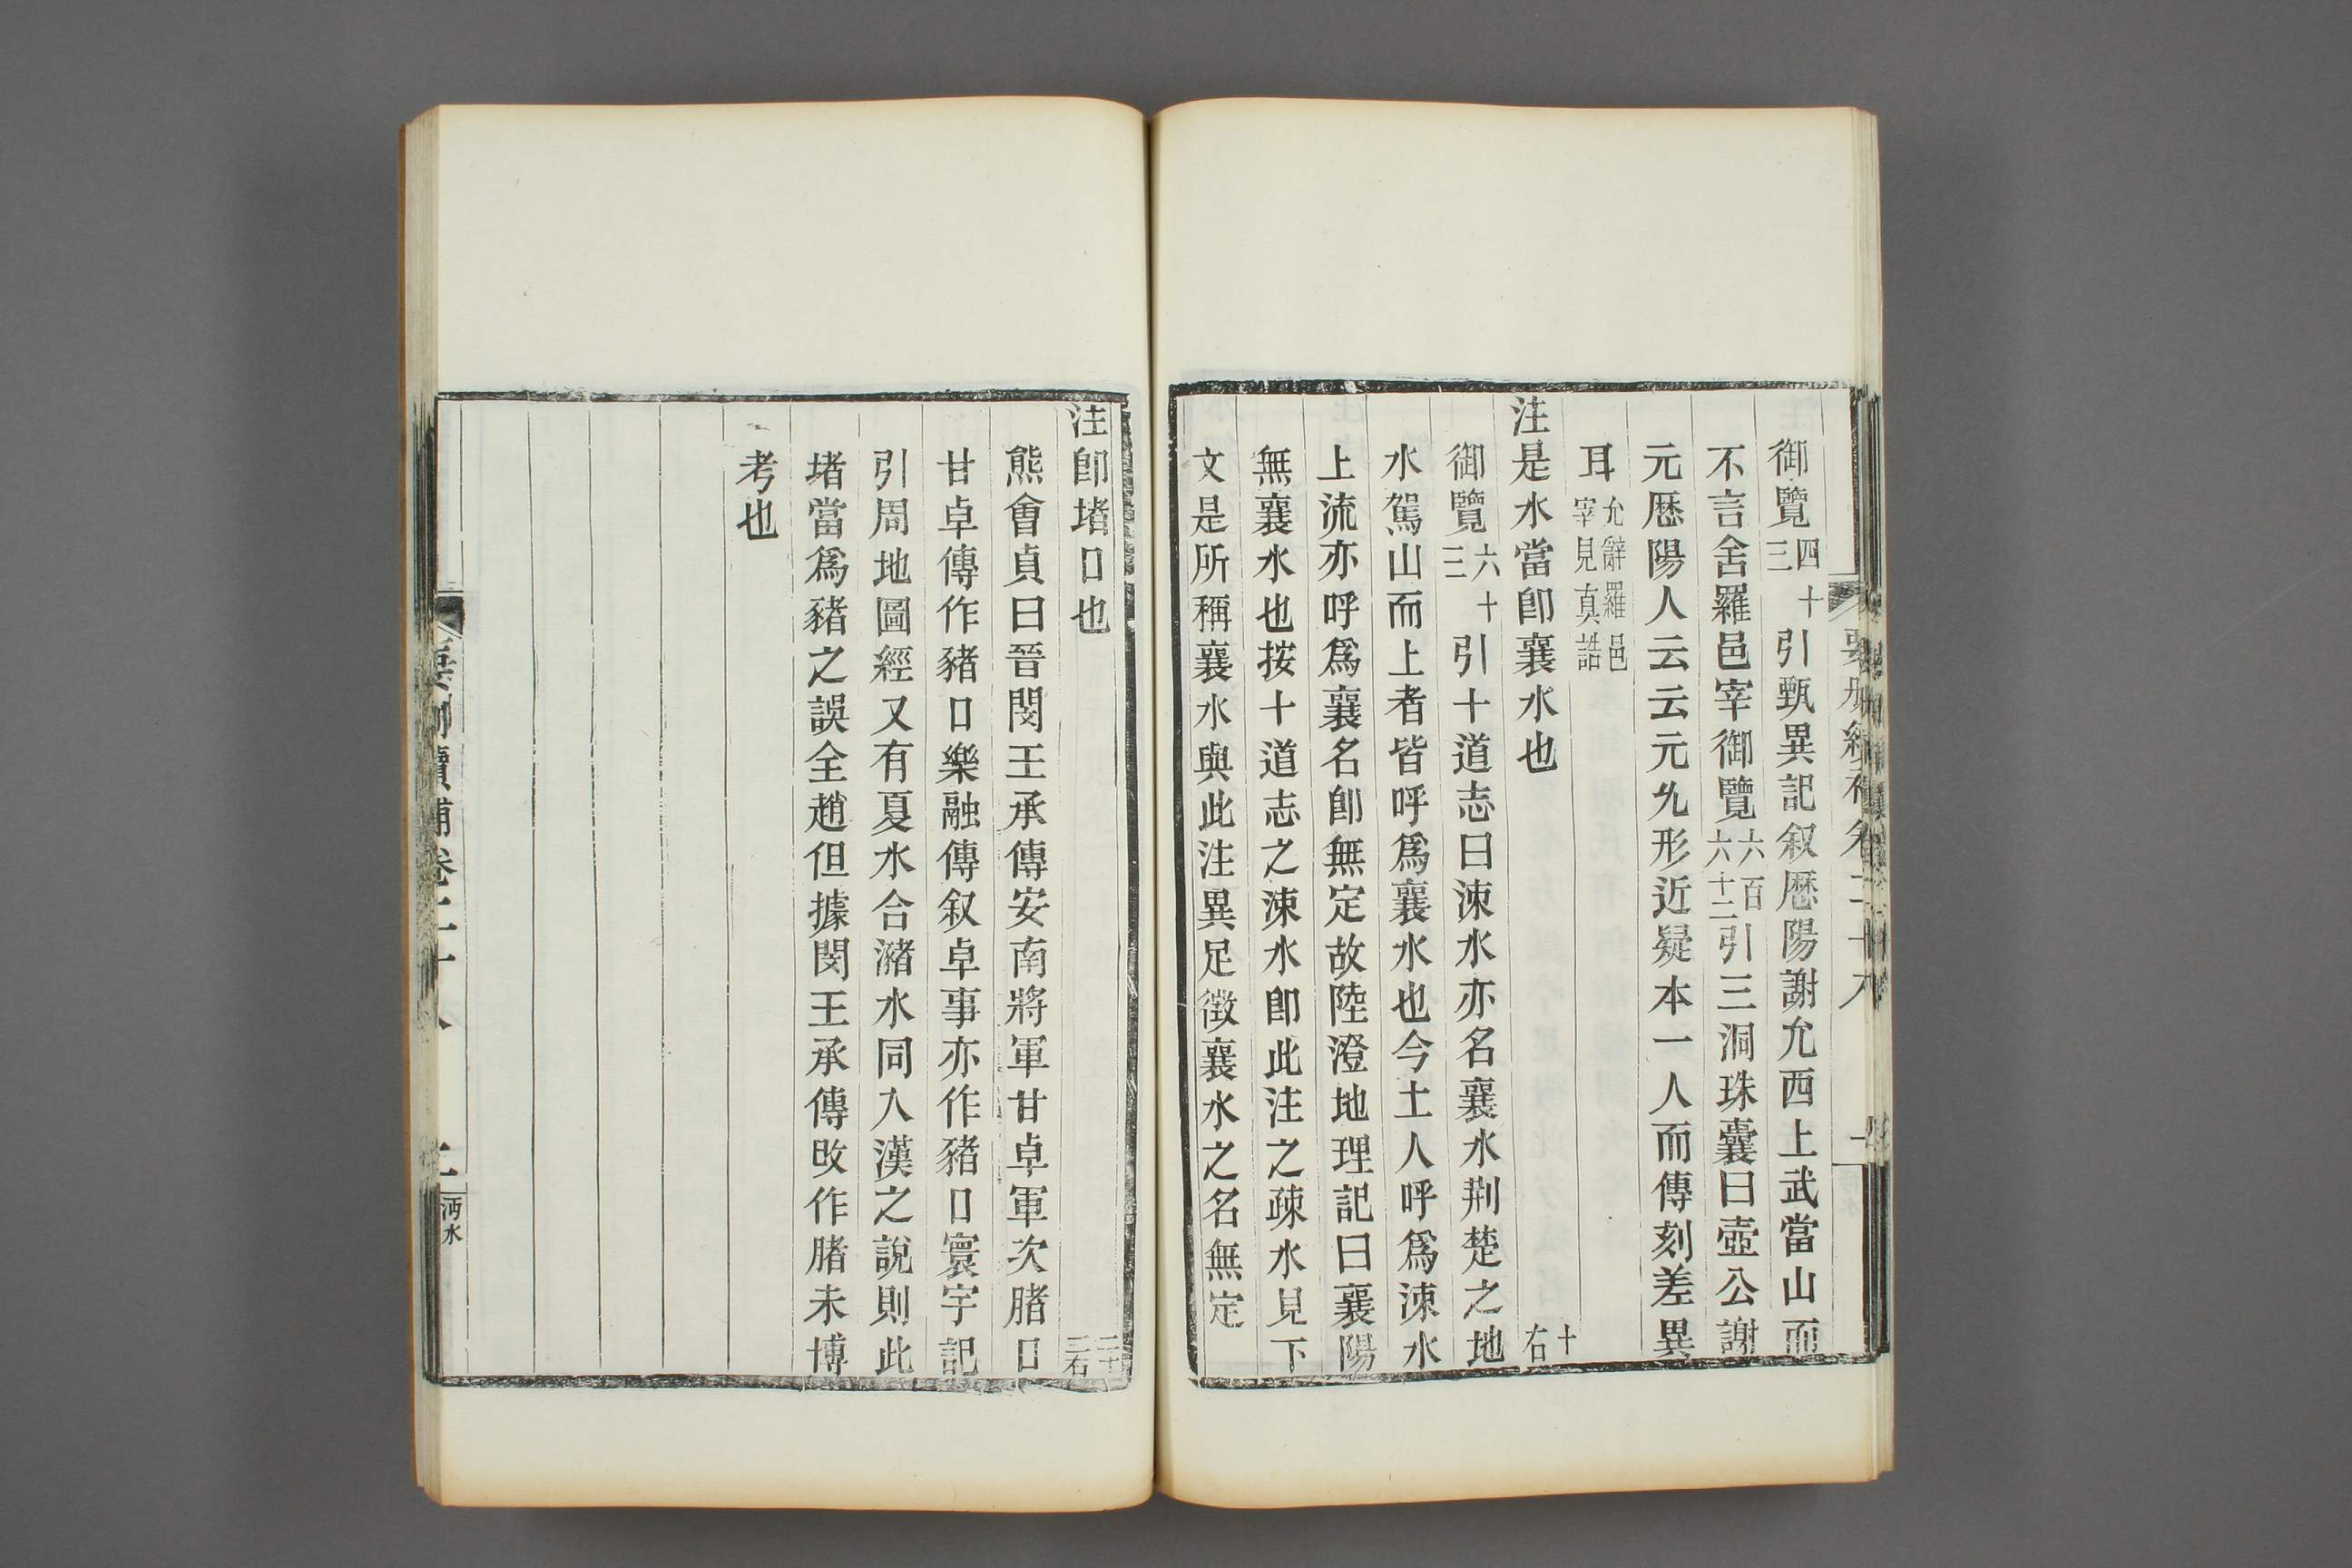 御覽四十三引甄異記叙厯陽謝允西上武當山而
不言舍羅邑宰御覽六百六十二引三洞珠囊曰壺公謝
元厯陽人云云元允形近疑本一人而傳刻差異
耳允辭羅邑宰見真誥
注是水當卽襄水也 十右
御覽六十三引十道志曰涑水亦名襄水荆楚之地
水駕山而上者皆呼爲襄水也今土人呼爲涑水
上流亦呼爲襄名卽無定故陸澄地理記曰襄陽
無襄水也按十道志之涑水卽此注之疎水見下
文是所稱襄水與此注異足徴襄水之名無定
注卽堵口也 二十二右
熊會貞曰晉閔王承傳安南將軍甘卓軍次䐗口
甘卓傳作豬口樂融傳叙卓事亦作豬口寰宇記
引周地圖經又有夏水合瀦水同入漢之說則此
堵當爲豬之誤全趙但據閔王承傳改作䐗未博
考也
要刪續補卷二十八
沔水